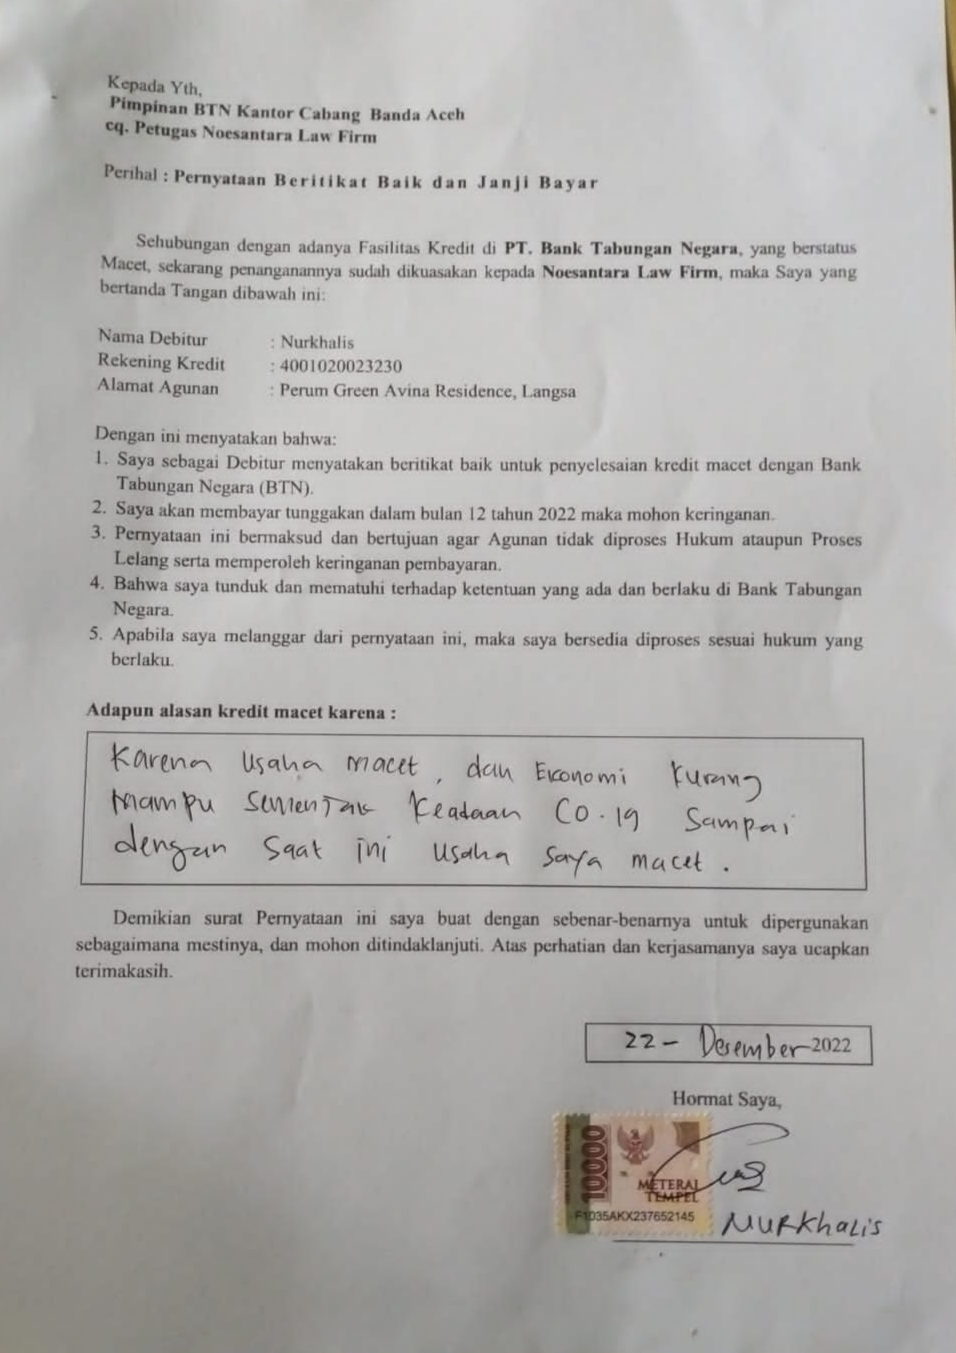 Kepada Yth,
Pimpinan BTN Kantor Cabang Banda Aceh
cq. Petugas Noesantara Law Firm
Perihal : Pernyataan Beritikat Baik dan Janji Bayar
Sehubungan dengan adanya Fasilitas Kredit di PT. Bank Tabungan Negara, yang berstatus
Macet, sekarang penanganannya sudah dikuasakan kepada Noesantara Law Firm, maka Saya yang
bertanda Tangan dibawah ini:
Nama Debitur : Nurkhalis
Rekening Kredit : 4001020023230
Alamat Agunan : Perum Green Avina Residence, Langsa
Dengan ini menyatakan bahwa:
1. Saya sebagai Debitur menyatakan beritikat baik untuk penyelesaian kredit macet dengan Bank
Tabungan Negara (BTN).
2. Saya akan membayar tunggakan dalam bulan 12 tahun 2022 maka mohon keringanan.
3. Pernyataan ini bermaksud dan bertujuan agar Agunan tidak diproses Hukum ataupun Proses
Lelang serta memperoleh keringanan pembayaran.
4. Bahwa saya tunduk dan mematuhi terhadap ketentuan yang ada dan berlaku di Bank Tabungan
Negara.
5. Apabila saya melanggar dari pernyataan ini, maka saya bersedia diproses sesuai hukum yang
berlaku.
Adapun alasan kredit macet karena :
Karena Usaha macet, dan Ekonomi Kurang
Mampu Sementak Keadaan CO.19 Sampai
dengan Saat ini Usaha Saya macet.
Demikian surat Pernyataan ini saya buat dengan sebenar-benarnya untuk dipergunakan
sebagaimana mestinya, dan mohon ditindaklanjuti. Atas perhatian dan kerjasamanya saya ucapkan
terimakasih.
22 - Desember 2022
Hormat Saya,
10000
METERAI
TEMPEL
F1035AKX237652145
NURKhaLis